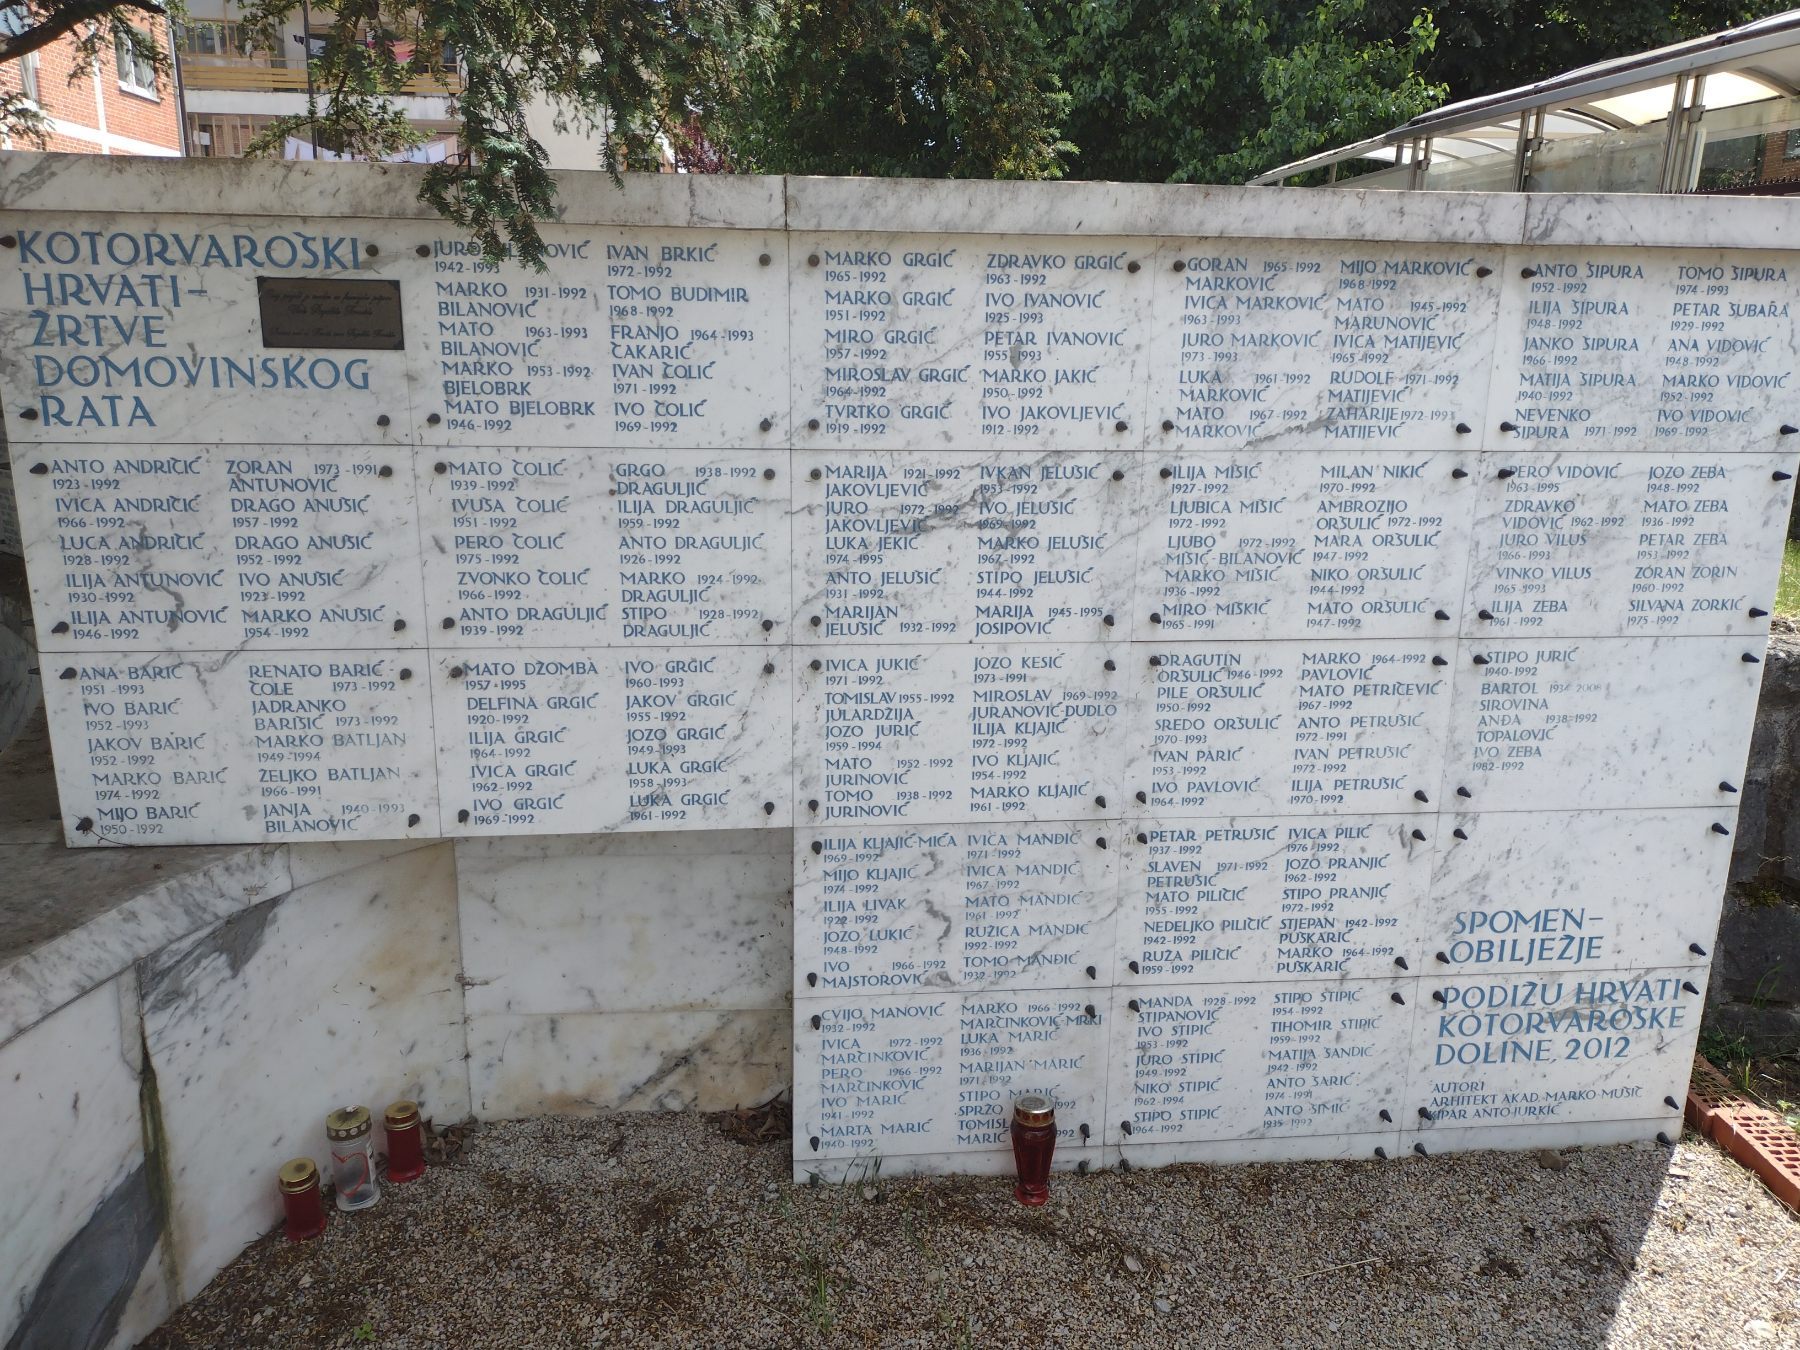 KOTORVAROŠKI
HRVATI–
ŽRTVE
DOMOVINSKOG
RATA
JURO
1942-1993
MARKO 1931-1992
BILANOVIĆ
MATO 1963-1993
BILANOVIĆ
MARKO 1953-1992
BJELOBRK
MATO BJELOBRK
1946-1992
IVAN BRKIĆ
1972-1992
TOMO BUDIMIR
1968-1992
FRANJO 1964-1993
ČAKARIĆ
IVAN ČOLIĆ
1971-1992
IVO ČOLIĆ
1969-1992
MARKO GRGIĆ
1965-1992
MARKO GRGIĆ
1951-1992
MIRO GRGIĆ
1957-1992
MIROSLAV GRGIĆ
1964-1992
TVRTKO GRGIĆ
1919-1992
ZDRAVKO GRGIĆ
1963-1992
IVO IVANOVIĆ
1925-1993
PETAR IVANOVIĆ
1955-1993
MARKO JAKIĆ
1950-1992
IVO JAKOVLJEVIĆ
1912-1992
GORAN 1965-1992
MARKOVIĆ
IVICA MARKOVIĆ
1963-1993
JURO MARKOVIĆ
1973-1993
LUKA 1961-1992
MARKOVIĆ
MATO 1967-1992
MARKOVIĆ
MIJO MARKOVIĆ
1968-1992
MATO 1945-1992
MARUNOVIĆ
IVICA MATIJEVIĆ
1965-1992
RUDOLF 1971-1992
MATIJEVIĆ
ZAHARIJE 1972-1993
MATIJEVIĆ
ANTO ŠIPURA
1952-1992
ILIJA ŠIPURA
1948-1992
JANKO ŠIPURA
1966-1992
MATIJA ŠIPURA
1940-1992
NEVENKO
ŠIPURA 1971-1992
TOMO ŠIPURA
1974-1993
PETAR ŠUBARA
1929-1992
ANA VIDOVIĆ
1948-1992
MARKO VIDOVIĆ
1952-1992
IVO VIDOVIĆ
1969-1992
ANTO ANDRIČIĆ
1923-1992
IVICA ANDRIČIĆ
1966-1992
LUCA ANDRIČIĆ
1928-1992
ILIJA ANTUNOVIĆ
1930-1992
ILIJA ANTUNOVIĆ
1946-1992
ZORAN 1973-1991
ANTUNOVIĆ
DRAGO ANUŠIĆ
1957-1992
DRAGO ANUŠIĆ
1952-1992
IVO ANUŠIĆ
1923-1992
MARKO ANUŠIĆ
1954-1992
MATO ČOLIĆ
1939-1992
IVUŠA ČOLIĆ
1951-1992
PERO ČOLIĆ
1975-1992
ZVONKO ČOLIĆ
1966-1992
ANTO DRAGULJIĆ
1939-1992
GRGO 1938-1992
DRAGULJIĆ
ILIJA DRAGULJIĆ
1959-1992
ANTO DRAGULJIĆ
1926-1992
MARKO 1924-1992
DRAGULJIĆ
STIPO 1928-1992
DRAGULJIĆ
MARIJA 1921-1992
JAKOVLJEVIĆ
JURO 1972-1992
JAKOVLJEVIĆ
LUKA JEKIĆ
1974-1995
ANTO JELUŠIĆ
1931-1992
MARIJAN
JELUŠIĆ 1932-1992
IVKAN JELUŠIĆ
1953-1992
IVO JELUŠIĆ
1969-1992
MARKO JELUŠIĆ
1967-1992
STIPO JELUŠIĆ
1944-1992
MARIJA 1945-1995
JOSIPOVIĆ
ILIJA MIŠIĆ
1927-1992
LJUBICA MIŠIĆ
1972-1992
LJUBO 1972-1992
MIŠIĆ-BILANOVIĆ
MARKO MIŠIĆ
1936-1992
MIRO MIŠKIĆ
1965-1991
MILAN NIKIĆ
1970-1992
AMBROZIJO
ORŠULIĆ 1972-1992
MARA ORŠULIĆ
1947-1992
NIKO ORŠULIĆ
1944-1992
MATO ORŠULIĆ
1947-1992
PERO VIDOVIĆ
1963-1995
ZDRAVKO
VIDOVIĆ 1962-1992
JURO VILUŠ
1966-1993
VINKO VILUŠ
1965-1993
ILIJA ZEBA
1961-1992
JOZO ZEBA
1948-1992
MATO ZEBA
1936-1992
PETAR ZEBA
1953-1992
ZORAN ZORIN
1960-1992
SILVANA ZORKIĆ
1975-1992
ANA BARIĆ
1951-1993
IVO BARIĆ
1952-1993
JAKOV BARIĆ
1952-1992
MARKO BARIĆ
1974-1992
MIJO BARIĆ
1950-1992
RENATO BARIĆ-
ČOLE 1973-1992
JADRANKO
BARIŠIĆ 1973-1992
MARKO BATLJAN
1949-1994
ŽELJKO BATLJAN
1966-1991
JANJA 1940-1993
BILANOVIĆ
MATO DŽOMBA
1957-1995
DELFINA GRGIĆ
1920-1992
ILIJA GRGIĆ
1964-1992
IVICA GRGIĆ
1962-1992
IVO GRGIĆ
1969-1992
IVO GRGIĆ
1960-1993
JAKOV GRGIĆ
1955-1992
JOZO GRGIĆ
1949-1993
LUKA GRGIĆ
1958-1993
LUKA GRGIĆ
1961-1992
IVICA JUKIĆ
1971-1992
TOMISLAV 1955-1992
JULARDŽIJA
JOZO JURIĆ
1959-1994
MATO 1952-1992
JURINOVIĆ
TOMO 1938-1992
JURINOVIĆ
JOZO KESIĆ
1973-1991
MIROSLAV 1969-1992
JURANOVIĆ-DUDLO
ILIJA KLJAJIĆ
1972-1992
IVO KLJAJIĆ
1954-1992
MARKO KLJAJIĆ
1961-1992
DRAGUTIN
ORŠULIĆ 1946-1992
PILE ORŠULIĆ
1950-1992
SREDO ORŠULIĆ
1970-1993
IVAN PARIĆ
1953-1992
IVO PAVLOVIĆ
1964-1992
MARKO 1964-1992
PAVLOVIĆ
MATO PETRIČEVIĆ
1967-1992
ANTO PETRUŠIĆ
1972-1991
IVAN PETRUŠIĆ
1972-1992
ILIJA PETRUŠIĆ
1970-1992
STIPO JURIĆ
1940-1992
BARTOL 1934-2008
SIROVINA
ANĐA 1938-1992
TOPALOVIĆ
IVO ZEBA
1982-1992
ILIJA KLJAJIĆ-MIĆA
1969-1992
MIJO KLJAJIĆ
1974-1992
ILIJA LIVAK
1922-1992
JOZO LUKIĆ
1948-1992
IVO 1966-1992
MAJSTOROVIĆ
IVICA MANDIĆ
1971-1992
IVICA MANDIĆ
1967-1992
MATO MANDIĆ
1961-1992
RUŽICA MANDIĆ
1992-1992
TOMO MANDIĆ
1932-1992
PETAR PETRUŠIĆ
1937-1992
SLAVEN 1971-1992
PETRUŠIĆ
MATO PILIČIĆ
1955-1992
NEDELJKO PILIČIĆ
1942-1992
RUŽA PILIČIĆ
1959-1992
IVICA PILIĆ
1976-1992
JOZO PRANJIĆ
1962-1992
STIPO PRANJIĆ
1972-1992
STJEPAN 1942-1992
PUŠKARIĆ
MARKO 1964-1992
PUŠKARIĆ
SPOMEN–
OBILJEŽJE
CVIJO MANOVIĆ
1932-1992
IVICA 1972-1992
MARČINKOVIĆ
PERO 1966-1992
MARČINKOVIĆ
IVO MARIĆ
1941-1992
MARTA MARIĆ
1940-1992
MARKO 1966-1992
MARČINKOVIĆ-MRKI
LUKA MARIĆ
1936-1992
MARIJAN MARIĆ
1971-1992
STIPO MARIĆ
SPRŽO
MARIĆ
MANDA 1928-1992
STIPANOVIĆ
IVO STIPIĆ
1953-1992
JURO STIPIĆ
1949-1992
NIKO STIPIĆ
1962-1994
STIPO STIPIĆ
1964-1992
STIPO STIPIĆ
1954-1992
TIHOMIR STIPIĆ
1959-1992
MATIJA ŠANDIĆ
1942-1992
ANTO ŠARIĆ
1974-1991
ANTO ŠIMIĆ
1935-1992
PODIŽU HRVATI
KOTORVAROŠKE
DOLINE, 2012
AUTORI
ARHITEKT AKAD. MARKO MUŠIĆ
KIPAR ANTO JURKIĆ